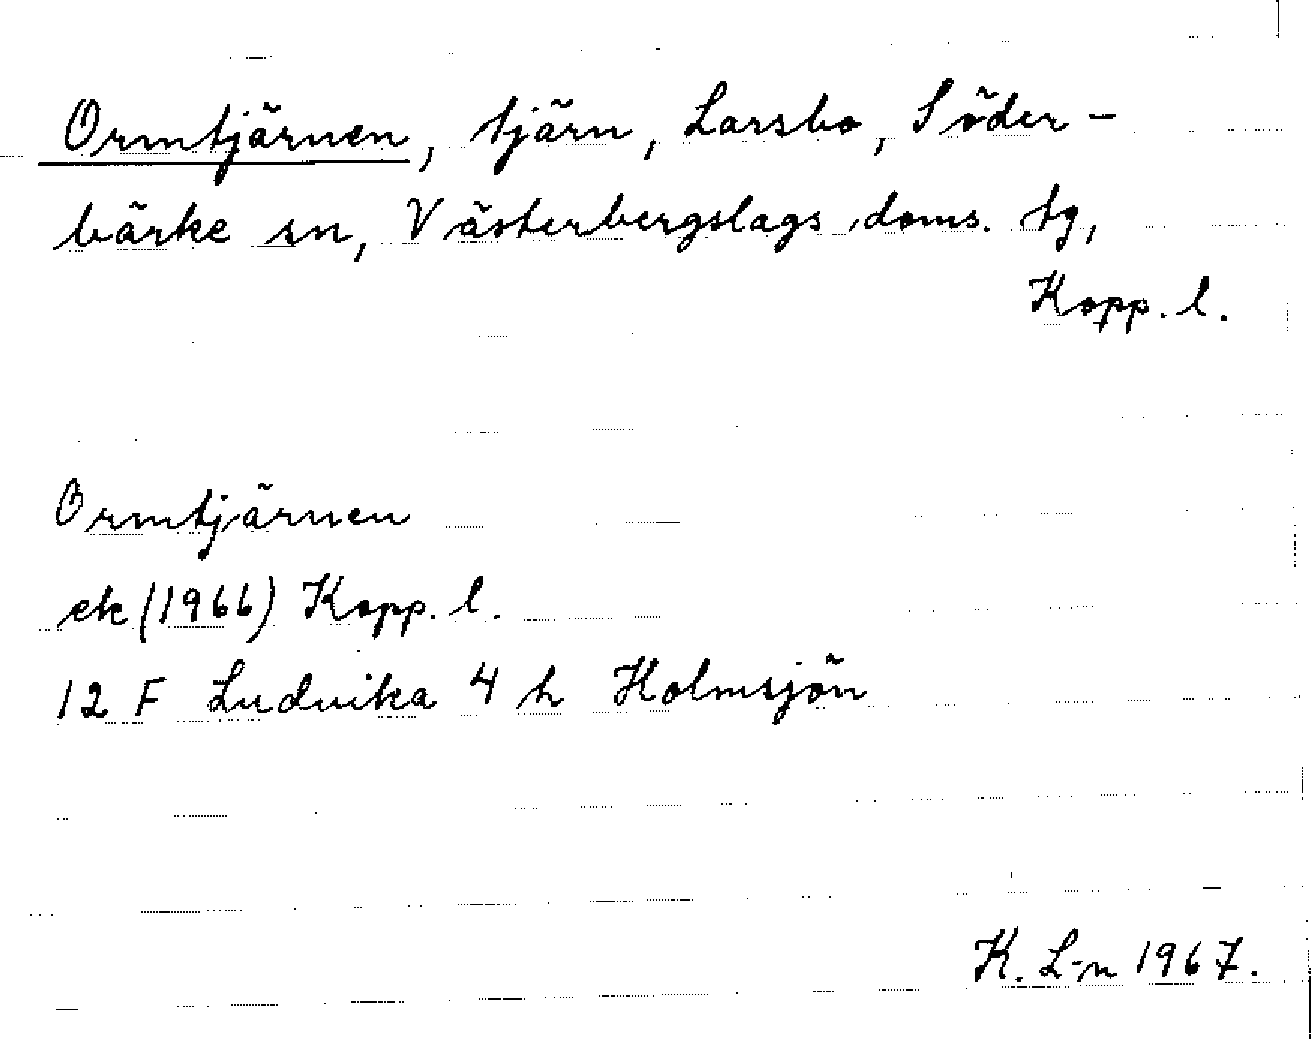 Ormtjärnen, tjärn, Larsbo, Söder-
bärke sn, Västerbergslags doms. tg,
Kopp. l.
Ormtjärnen
ek (1966) Kopp. l.
12 F Ludvika 4 h Holmsjön
K. L-n 1967.